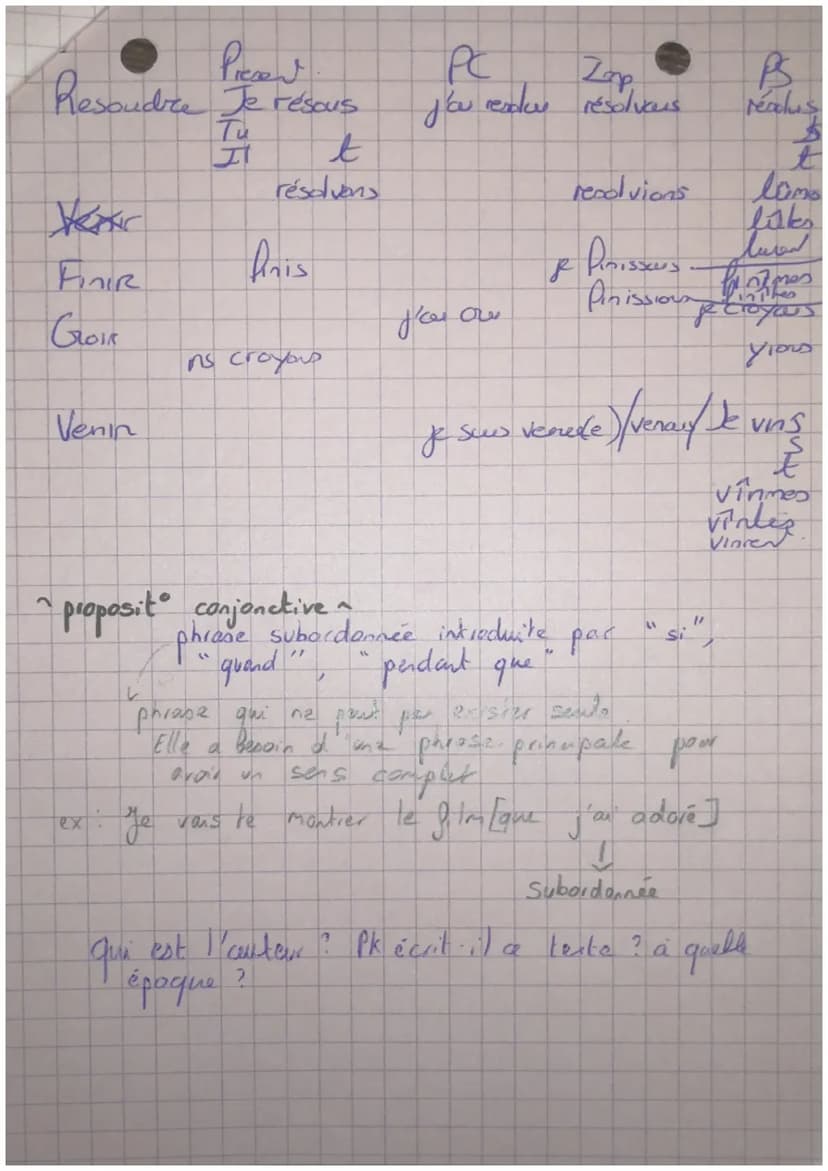 Présent PC Imp PS
Resoudre Je résous j'ai résolu résolvais résolus
Tu s
Il t t
résolvons resolvions lûmes
Venir lûtes
lurent
Finir finis je finissais finîmes
finissions finîtes
Croir j'ai cru je croyais
ns croyons yions
Venir je suis venu(e) / venais / Je vins
s
t
vînmes
vîntes
vinrent
~ proposit° conjonctive ~
phrase subordonnée introduite par "si",
"quand", "pendant que"
phrase qui ne peut pas exister seule
Elle a besoin d'une phrase principale pour
avoir un sens complet
ex : Je vais te montrer le film [que j'ai adoré]
Subordonnée
Qui est l'auteur ? Pk écrit-il ce texte ? à quelle
époque ?